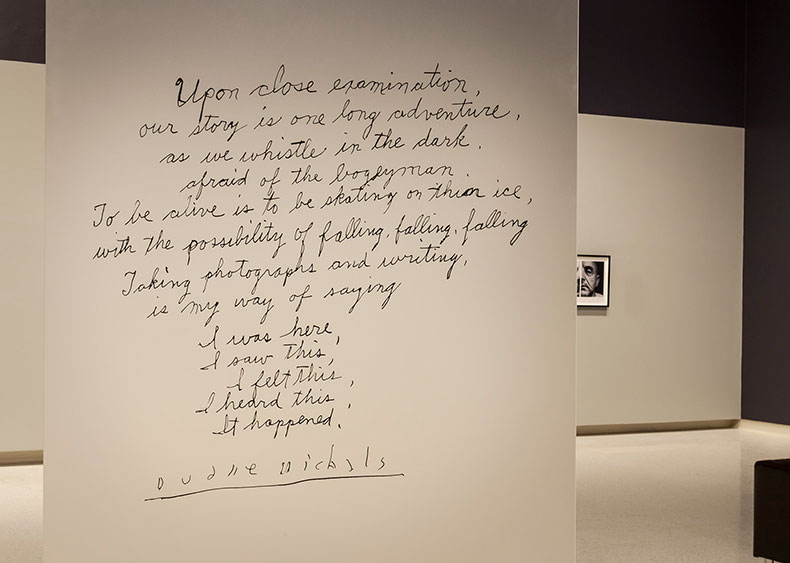 Upon close examination,
our story is one long adventure,
as we whistle in the dark.
afraid of the bogeyman.
To be alive is to be skating on thin ice,
with the possibility of falling, falling, falling
Taking photographs and writing,
is my way of saying
I was here,
I saw this,
I felt this,
I heard this,
It happened.
Duane Michals